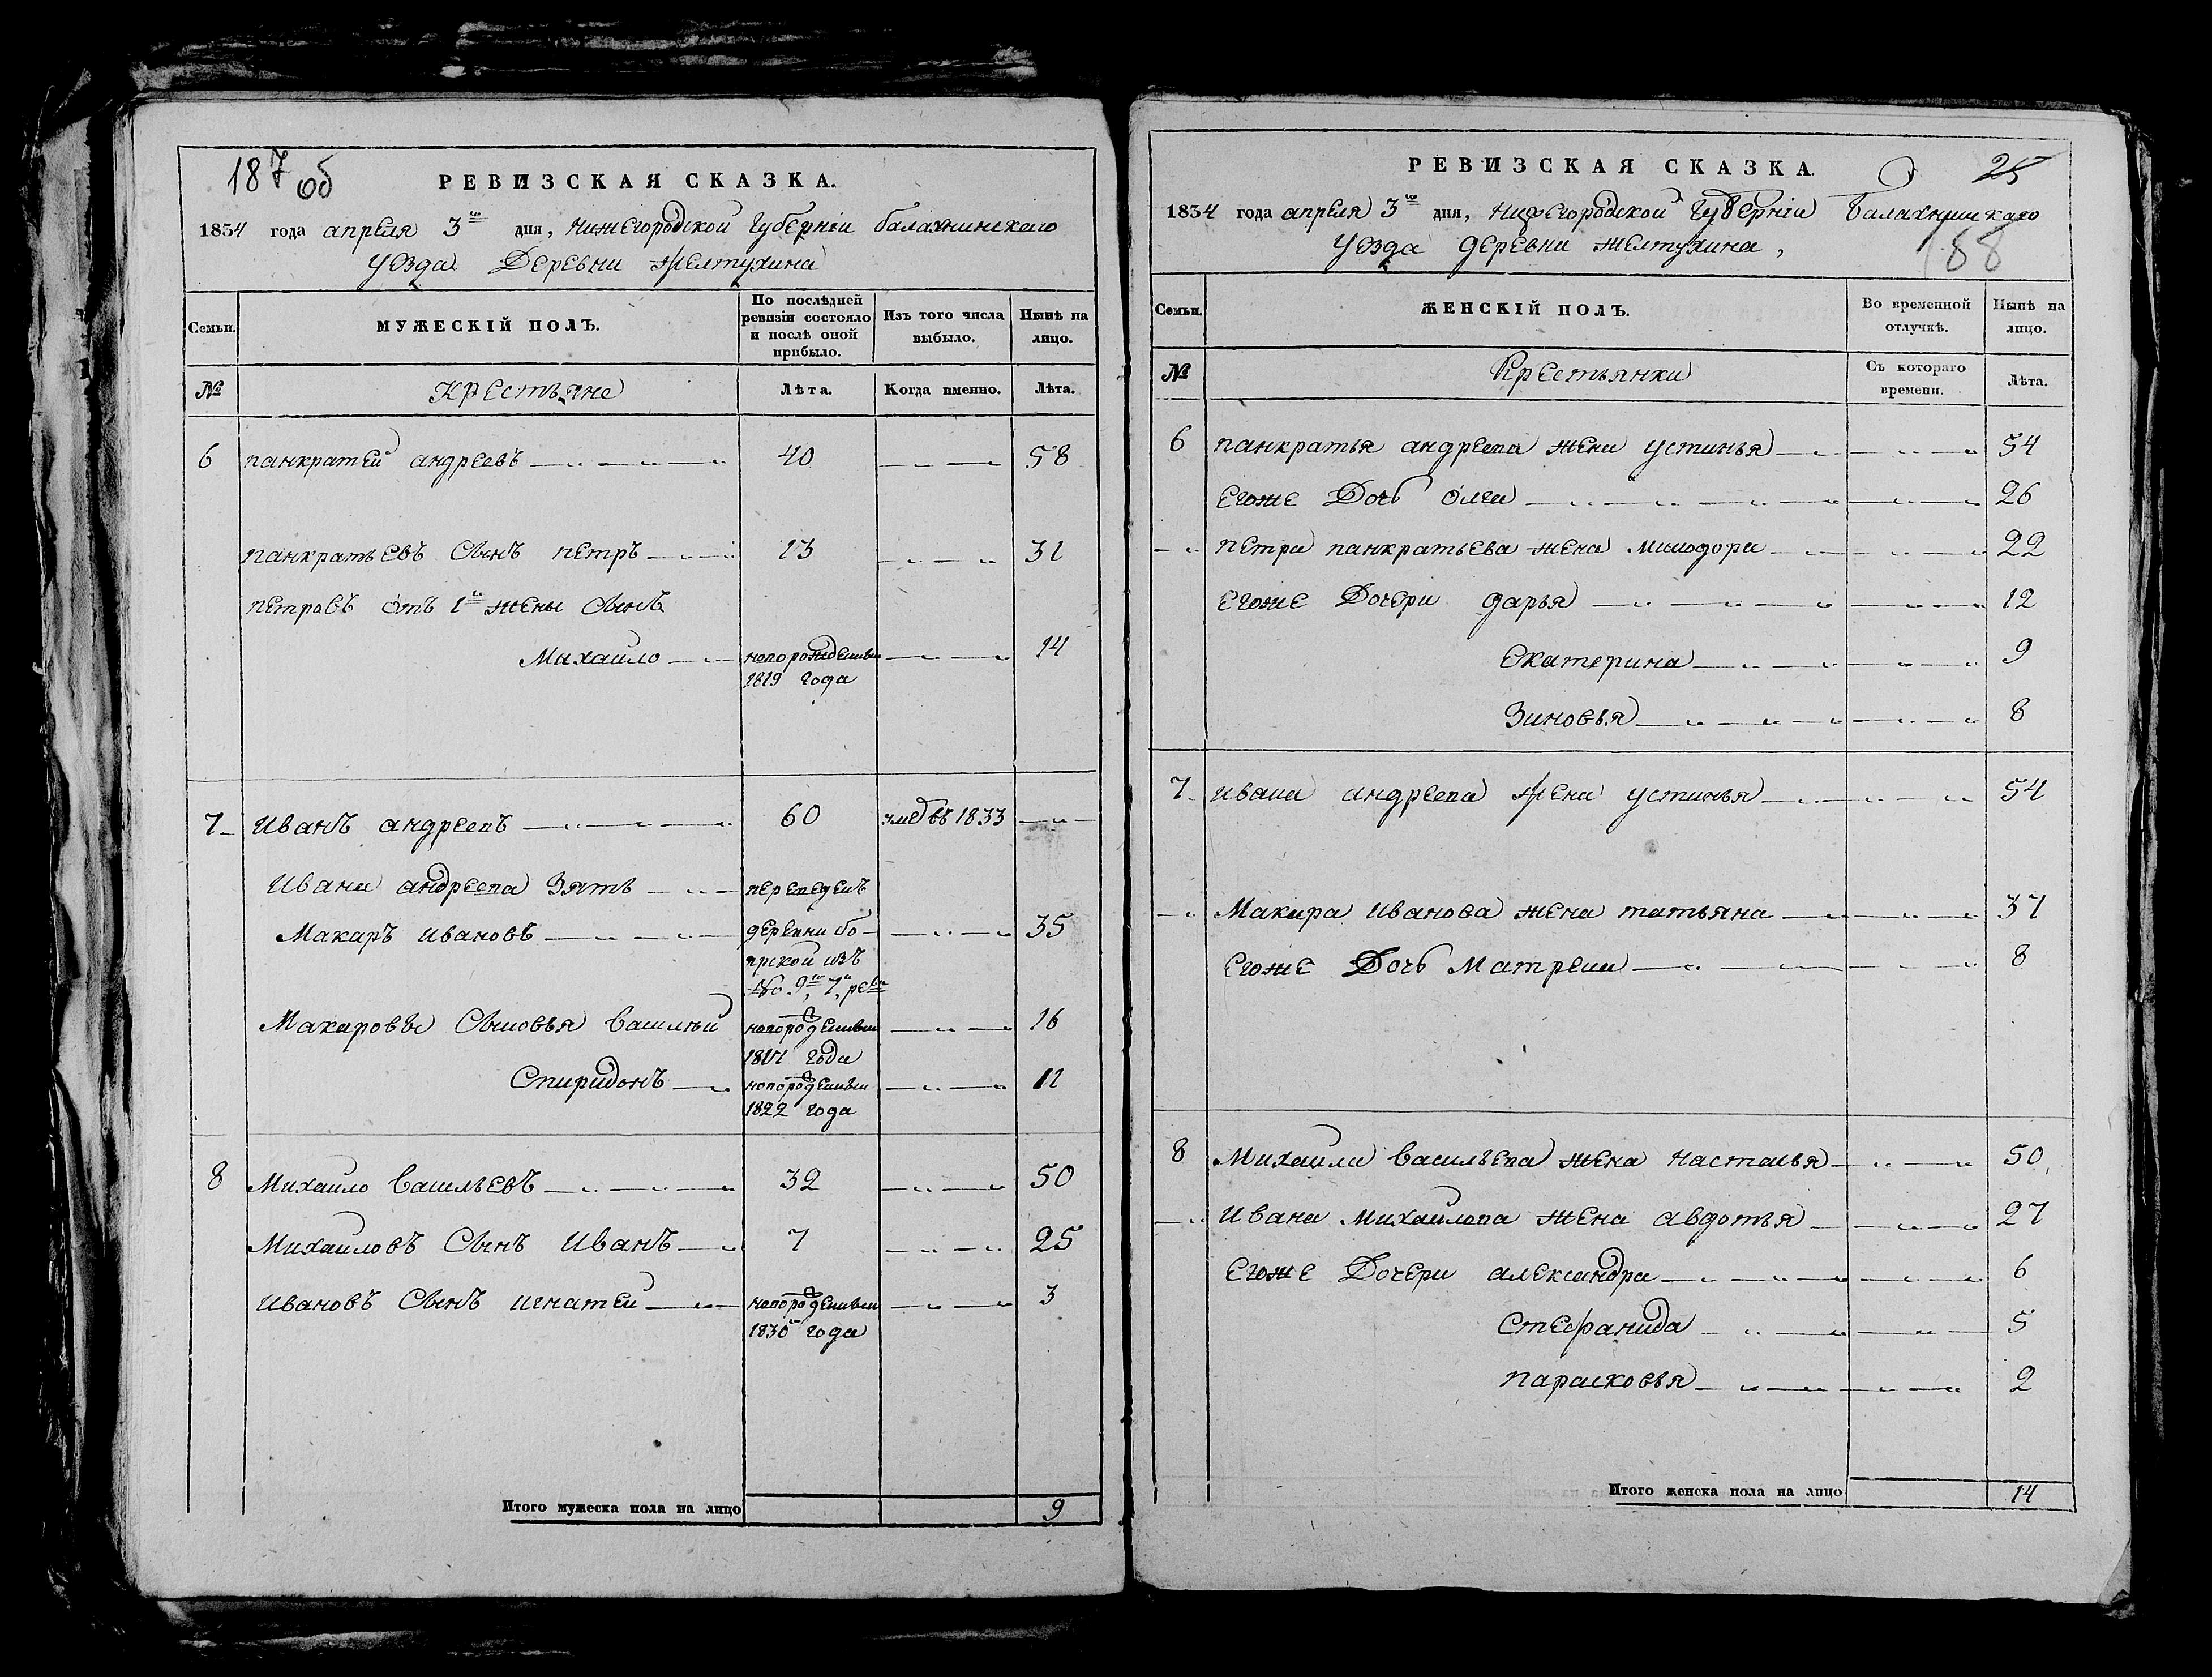 187 об
РЕВИЗСКАЯ СКАЗКА.
1834 года апреля 3го дня, нижегородской губерніи балахнинскаго
уезда Деревни желтухина
Семьи. МУЖЕСКІЙ ПОЛЪ. По послѣдней ревизіи состояло и послѣ оной прибыло. Изъ того числа выбыло. Нынѣ на лицо.
№ Крестьяне Лѣта. Когда именно. Лѣта.
6 панкратей андреевъ 40 58
панкратьевъ сынъ петръ 13 31
петровъ отъ 1й жены сынъ
Михайло новорожденны 14
1819 года
7 Иванъ андреевъ 60 умеръ въ 1833
Ивана андреева зять переведенъ
Макаръ ивановъ деревни бо- 35
ярской изъ
№ 9го 7й ре
Макаровы сыновья василей новорожденны 16
года
Спиридонъ новорожденны 11
1822 года
8 Михайло васильевъ 32 50
Михайловъ Сынъ Иванъ 7 25
Ивановъ Сынъ игнатей новорожденны 3
1830 года
Итого мужеска пола на лицо 9
25
РЕВИЗСКАЯ СКАЗКА.
1834 года апреля 3го дня, нижегородской губерніи балахнинскаго
уезда деревни желтухина,
188
Семьи. ЖЕНСКІЙ ПОЛЪ. Во временной отлучкѣ. Нынѣ на лицо.
№ Крестьянки Съ котораго времени. Лѣта.
6 панкратья андреева жена устинья 54
егоже Дочь олга 26
петра панкратьева жена минодора 22
егоже Дочери дарья 12
екатерина 9
Зиновья 8
7 ивана андреева жена устинья 54
Макара иванова жена татьяна 37
егоже Дочь Матрена 8
8 Михаила васильева жена настасья 50
ивана михайлова жена авдотья 27
егоже Дочери александра 6
Стефанида 5
парасковья 2
Итого женска пола на лицо 14